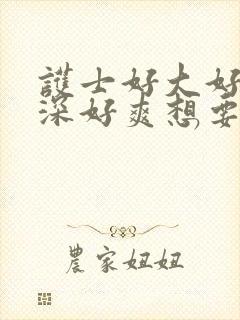 護士好大好
深好爽想要
農家妞妞